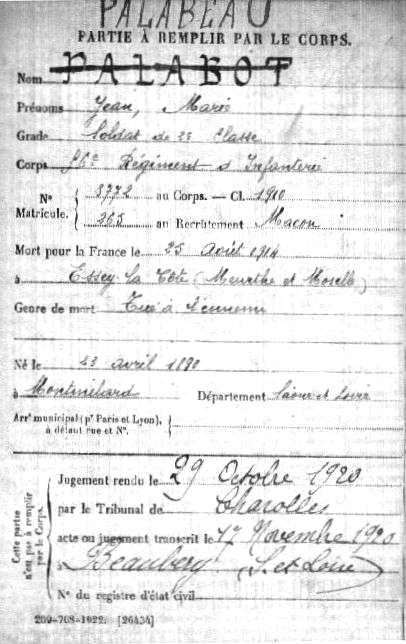 PALABEAU
PARTIE À REMPLIR PAR LE CORPS.
Nom PALABOT
Prénoms Jean, Marie
Grade Soldat de 2e Classe
Corps 56e Régiment d'Infanterie
N° Matricule. { 3772 au Corps. — Cl. 1910
265 au Recrutement Macon
Mort pour la France le 25 août 1914
à Essey la Côte (Meurthe et Moselle)
Genre de mort Tué à l'ennemi
Né le 23 avril 1890
à Montmelard Département Saône et Loire
Arrt municipal (pr Paris et Lyon), à défaut rue et N°. {
Cette partie n'est pas à remplir par le Corps.
Jugement rendu le 29 Octobre 1920
par le Tribunal de Charolles
acte ou jugement transcrit le 17 Novembre 1920
à Beaubery (S. et Loire)
N° du registre d'état civil
209-708-1922. [26434]